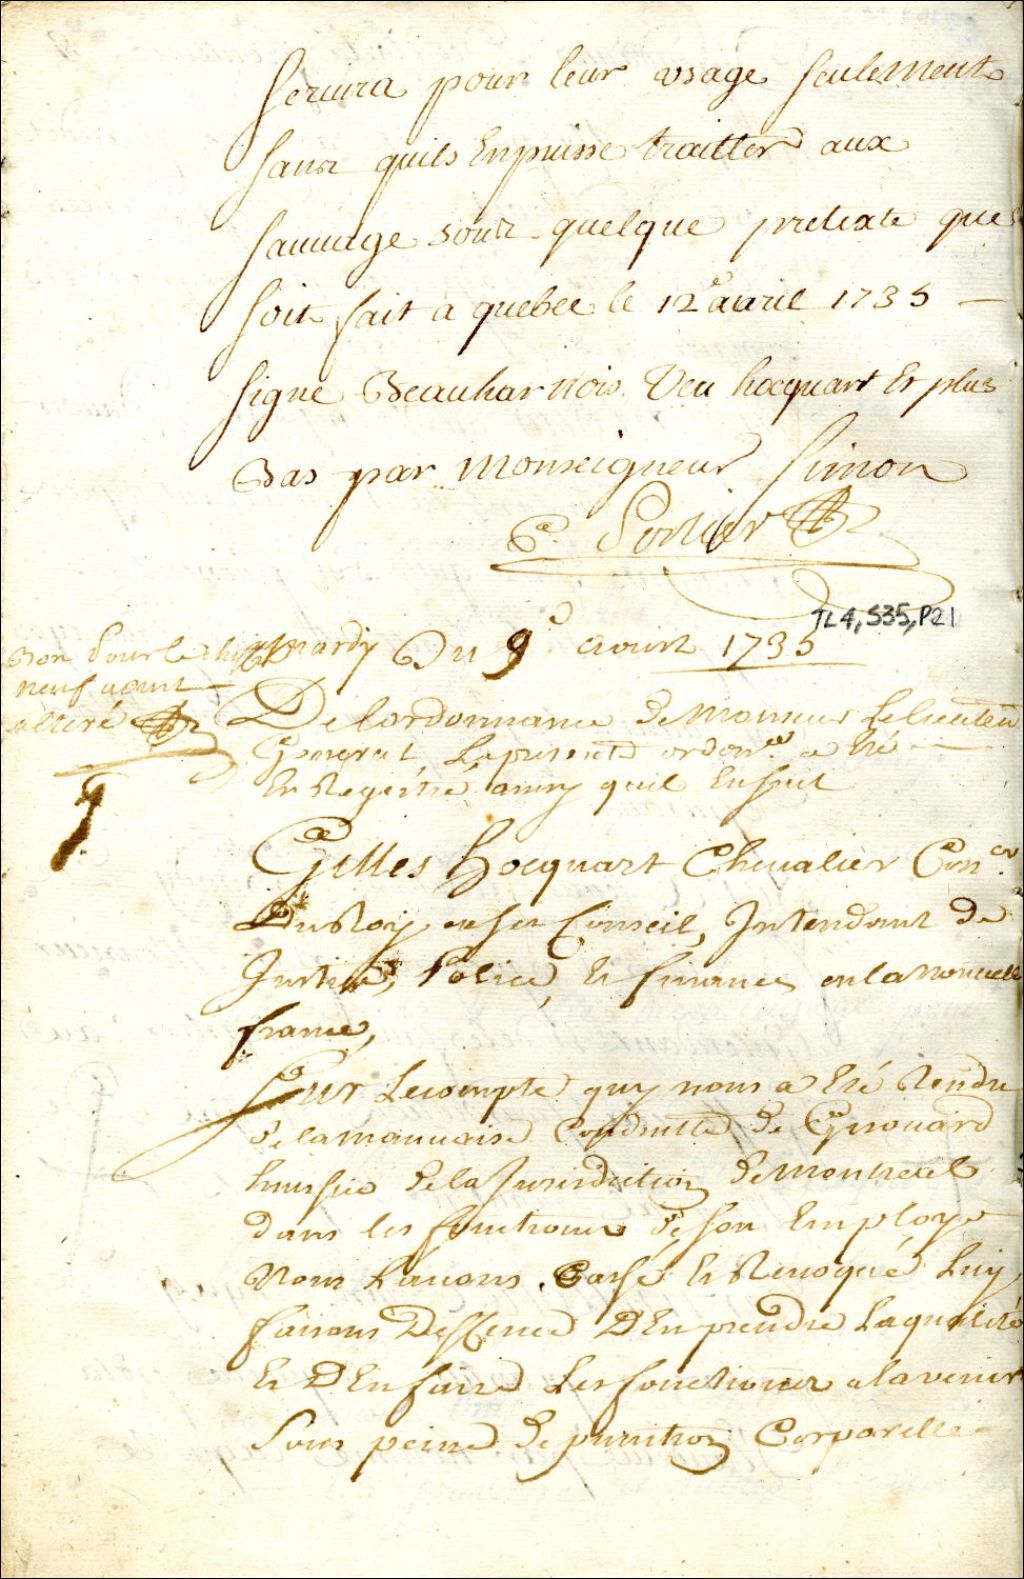 seruira pour leur vsage seulement
sans quils Enpuisse traitter aux
sauuage sous quelque pretexte que
soit fait a quebec le 12e auril 1735 —
signe Beauharnois. Veu hocquart Et plus
Bas par Monseigneur Simon
C Porlier
TL4, S35, P21
Mardy Du 9e. Aoust 1735
Bon Pour le chiffre
neuf aoust
alteré
9
De Lordonnance De Monsieur Le Lieuten
General, La presente ordonce a Eté
Et Regéstré ainsy quil Ensuit
Gilles Hocquart Cheualier Concer.
Du Roy en ses Conseil, Intendant de
Justice, Police, Et finances en la Nouuelle
france,
Sur Le compte quy nous a Eté Rendu
de la mauuaise Conduitte de Girouard
huissier de la Jurisdiction de Montreal
dans les fonctions de son Employe
Nous Lauons Cassé Et Reuoqué Luy
faisons Deffence D'En prendre La qualité
Et D'En faire Les fonctions a lavenir
Sous peine de punition Corporelle